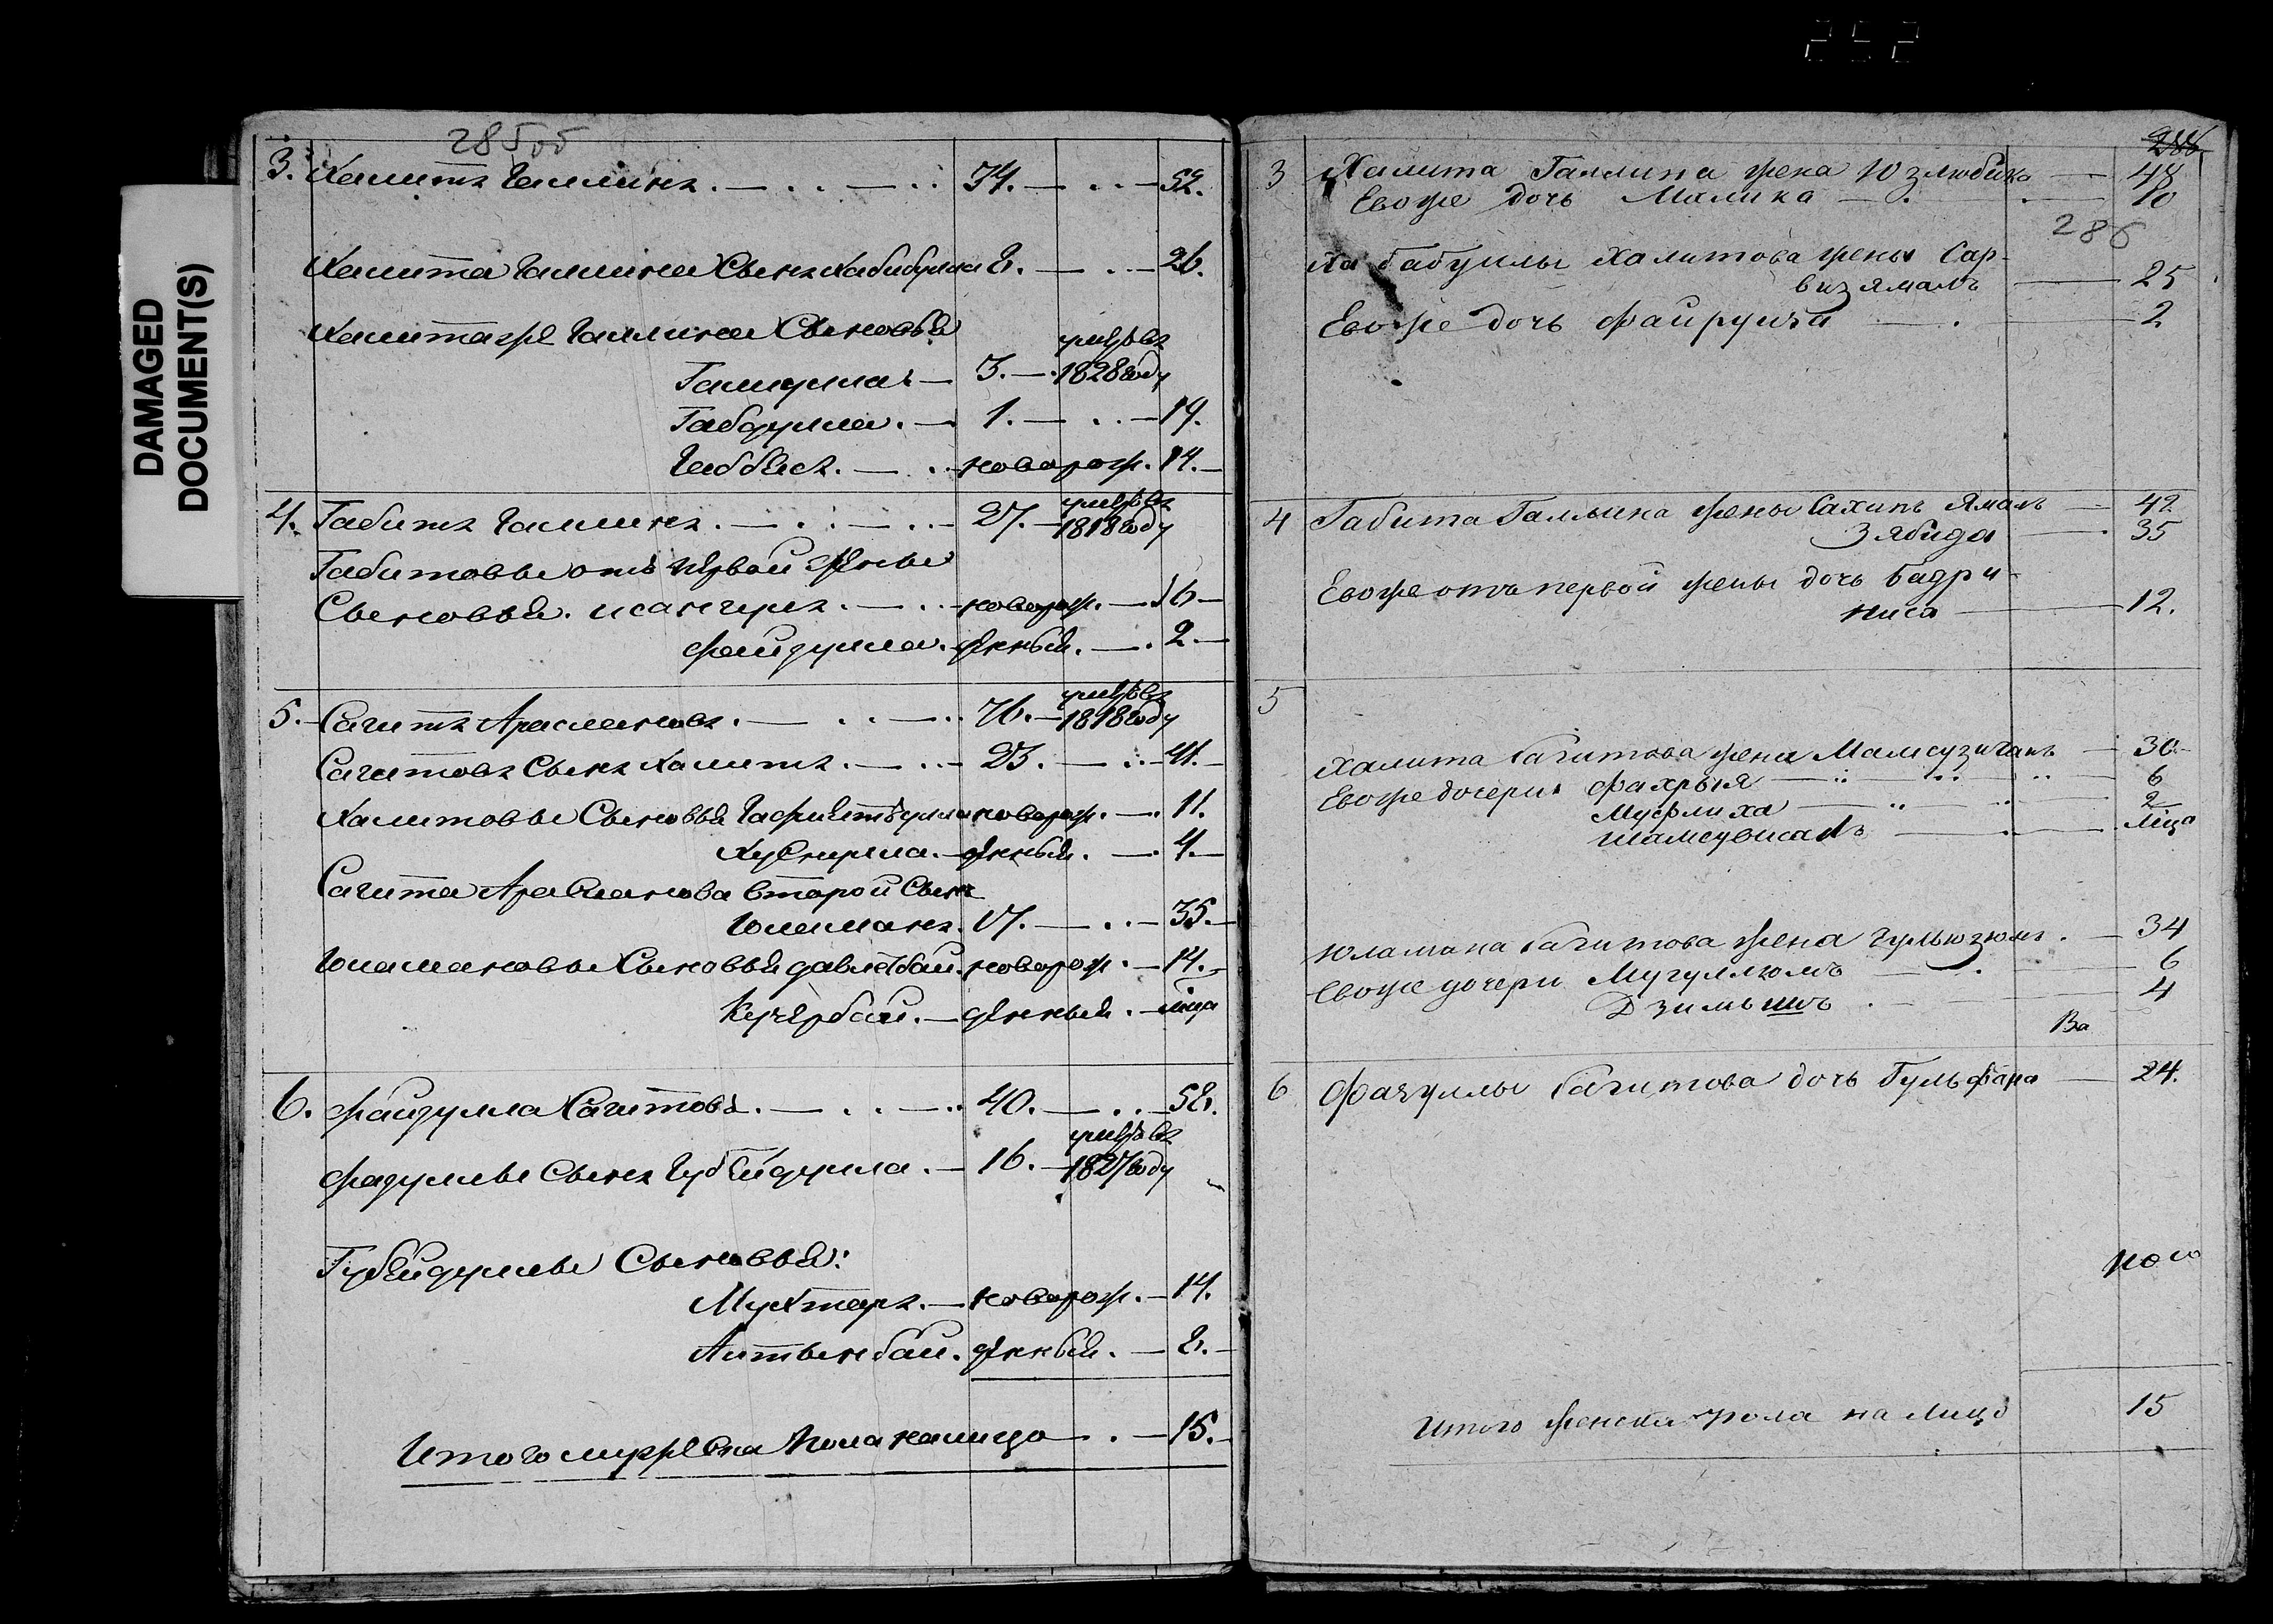 252
DAMAGED
DOCUMENT(S)
285 об
3. Халитъ Галлинъ. 34. 52.
Халита Галлина Сынъ Хабибулла 8. 26.
Халитаже Галлина Сыновья
умръ въ
Галиулла 3. 1828 году
Габдулла. 1. 19.
Габбасъ. новорож. 14.
4. Габитъ Галлинъ. 27. умръ въ 1818 году
Габитовы отъ первой жены
Сыновья. исангулъ. новорож. 16
файдулла. онный. 2.
5. Сагитъ Араслановъ. 76. умръ въ 1818 году
Сагитовъ Сынъ Халитъ. 23. 41.
Халитовы Сыновья новорож. 11.
Хуснулла. онный. 4.
Сагита Арасланова второй Сынъ
Юламанъ. 17. 35.
Юламановы Сыновья давлетбай. новорож. 14.
Кучербай. онный.
6. файзулла Сагитовъ. 40. 58.
умръ въ
фазуллы Сынъ Губейдулла. 16. 1827 году
Губейдуллы Сыновья:
Мухтаръ. новорож. 14.
Алтынбай. онный. 8.
Итого мужеска пола налицо 15.
286
3 Халита Галлина жена Юзлюбика 48
Евоже дочь Малика 10
286
Хабибуллы Халитова жена Сар-
визямалъ 25
Евоже дочь Файруиза 2
4 Габита Галлина жены Сахипъ Ямалъ 42
Зябида 35
Евоже отъ первой жены дочь Бадри-
ниса 12.
5
Халита Сагитова жена 30
Евоже дочери Фахрыя 6
Муфлиха 2
Юламана Сагитова жена Гульюзюмъ. 34
Евоже дочери Мугуллюмъ 6
4
Ва
6 Фазуллы Сагитова дочь Гульфара 24.
Итого женска пола на лицо 15